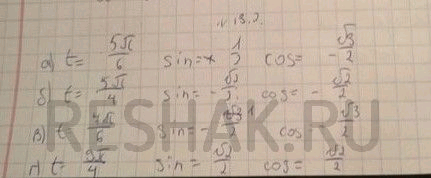 N 13.2.
а) t = 5π/6 sin = + 1/2 cos = - √3/2
б) t = 5π/4 sin = - √2/2 cos = - √2/2
в) t 7π/6 sin = - 1/2 cos √3/2
г) t = 9π/4 sin = √2/2 cos = √2/2
RESHAK.RU